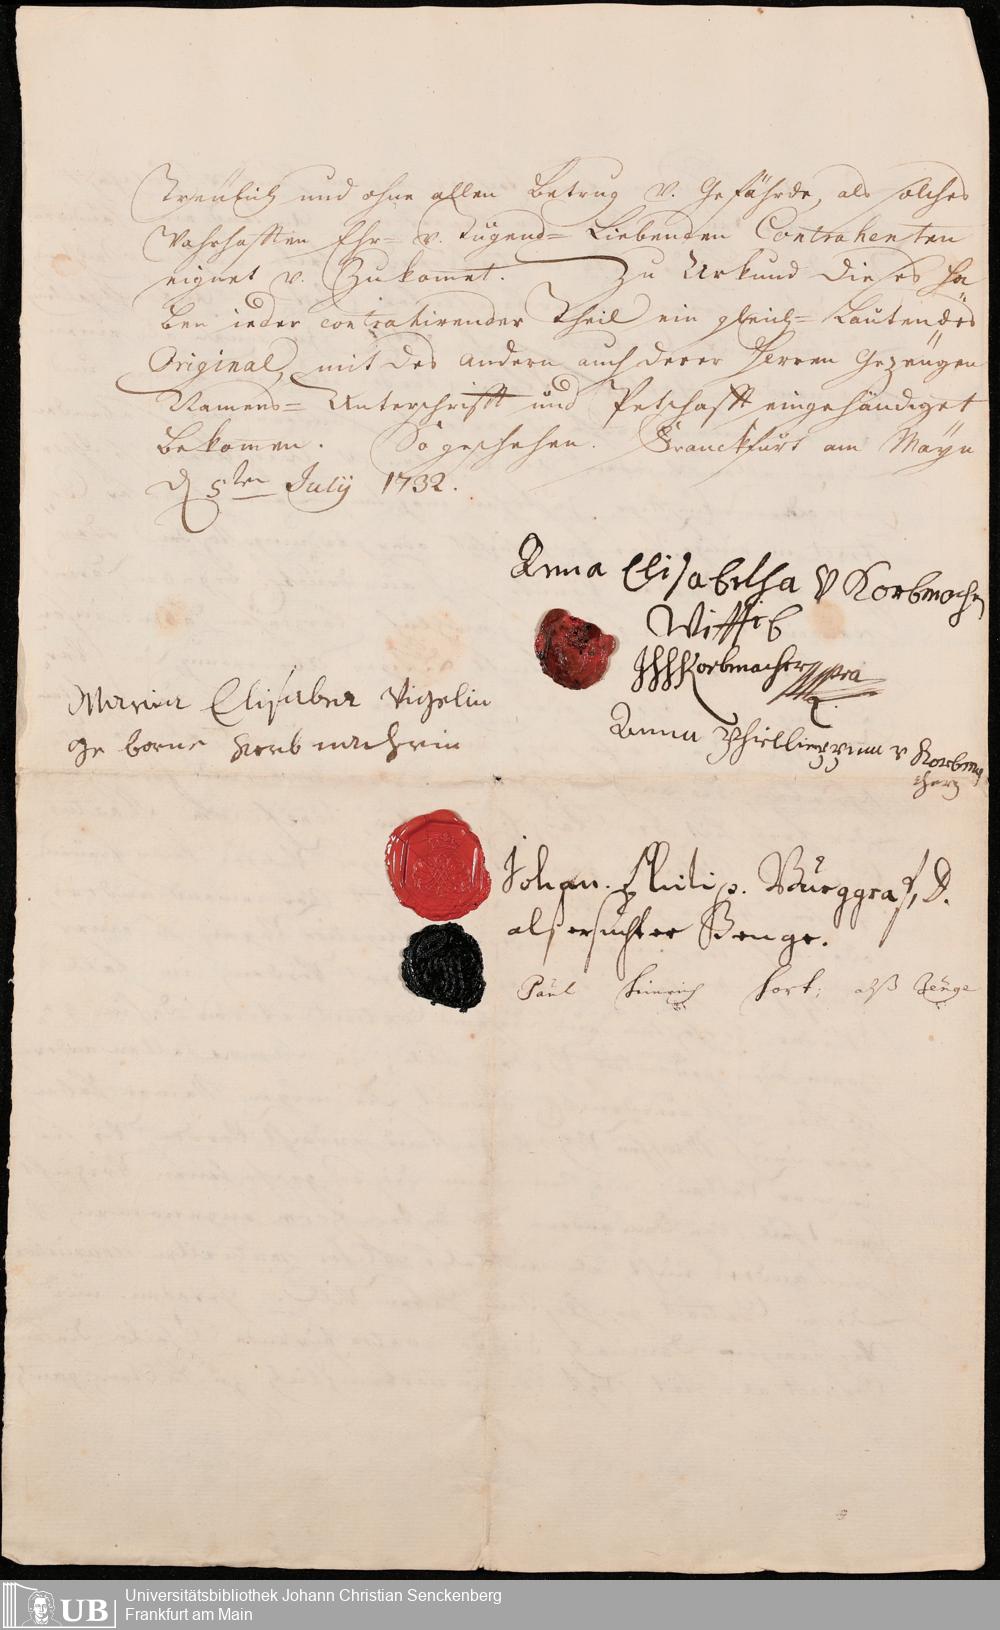 Treülich und ohne allen Betrug v. Gefährde, als solches
Wahrhafften Ehr= v. Tugend= Liebenden Contrahenten
eignet v. Zukomet. Zu Urkund dieses ha
ben ieder contrahirender Theil ein gleich= Lautendes
Original, mit des andern auch derer Herren Gezeügen
Namens= Unterschrifft und Petschafft eingehändiget
bekomen. So geschehen. Franckfürt am Mayn
d 5ten Julij 1732.
Anna Elisabetha V Korbmacher
Wittib
Korbmacher
Maria Elisabeta Vigelin
ge borne Korb macherin
Anna v Korbma
cherg
Johan. Philip. Burggraf, D.
alß ersuchter Zeuge.
Paul Hinrich Hork: alß Zeüge
UB
Universitätsbibliothek Johann Christian Senckenberg
Frankfurt am Main